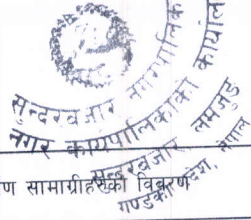 सुन्दरबजार नगरपालिका
नगर कार्यपालिकाको कार्यालय
सुन्दरबजार लमजुङ
गण्डकी प्रदेश, नेपाल
ण सामाग्रीहरुको विवरण